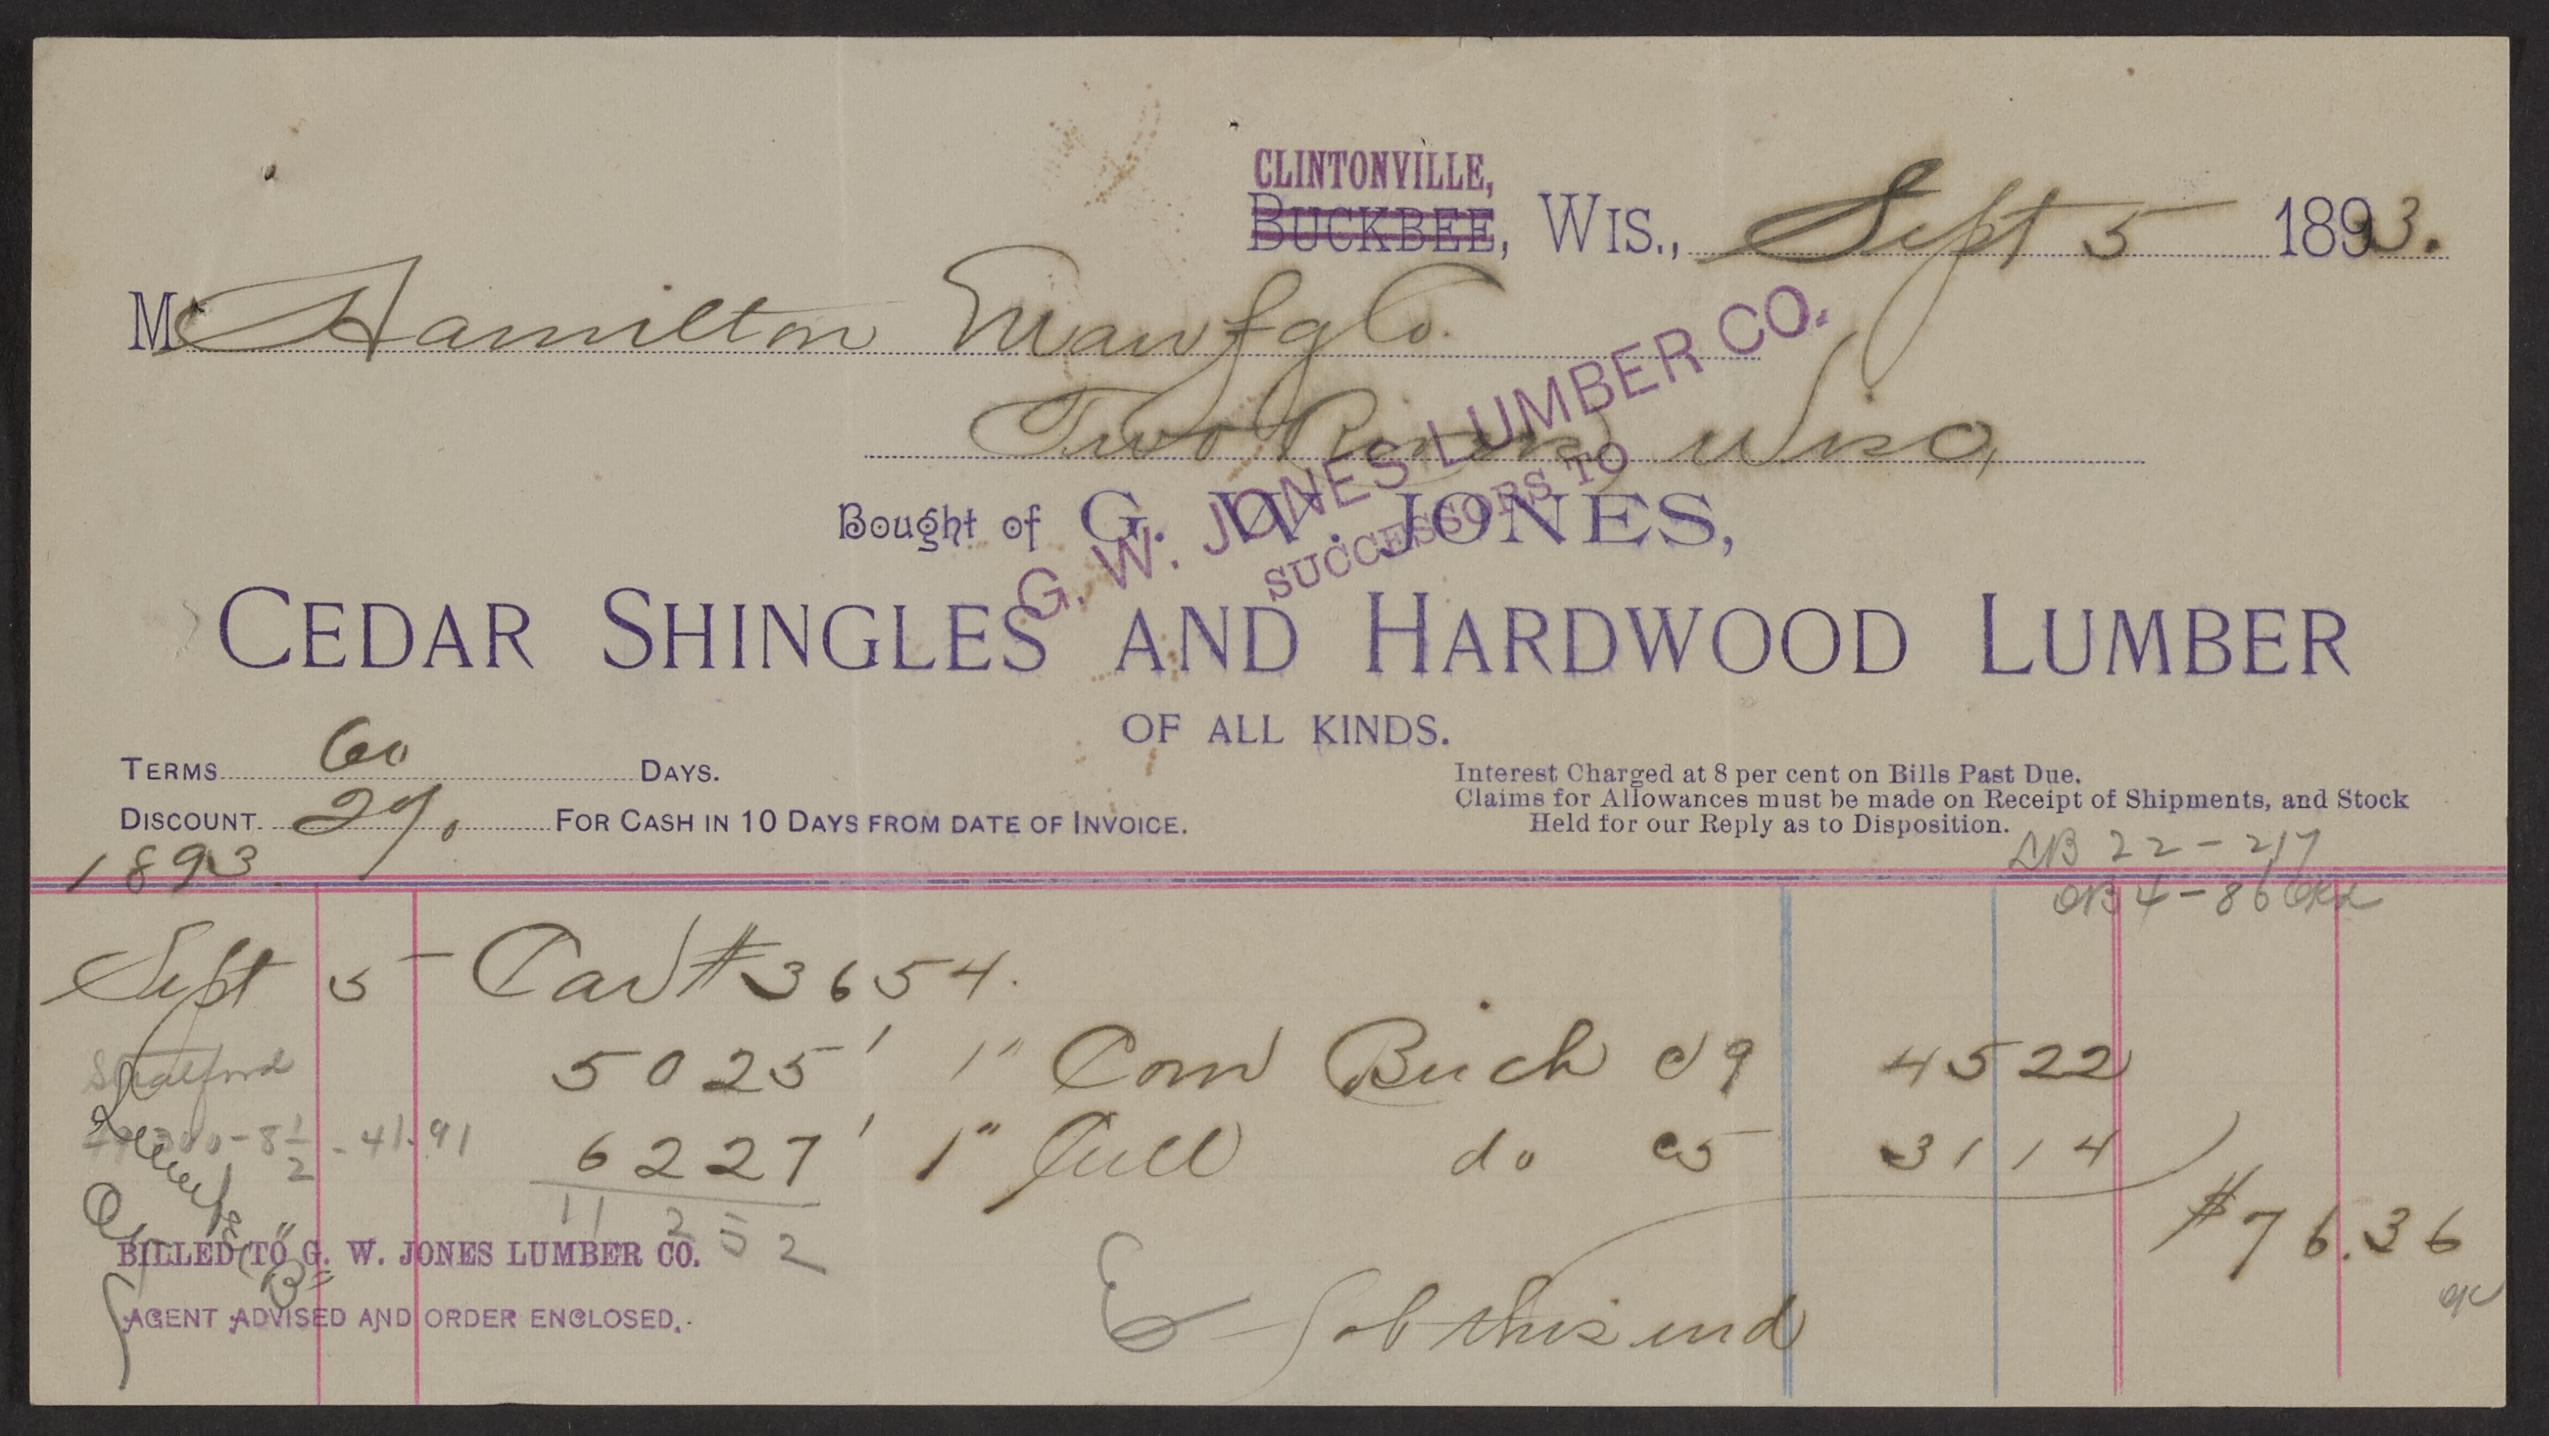 CLINTONVILLE,
BUCKBEE, WIS., Sept 5 1893.
M Hamilton Manfg Co.
Two Rivers Wis,
G. W. JONES LUMBER CO.
SUCCESSORS TO
Bought of G. W. JONES,
CEDAR SHINGLES AND HARDWOOD LUMBER
OF ALL KINDS.
TERMS 60 DAYS.
DISCOUNT 2% FOR CASH IN 10 DAYS FROM DATE OF INVOICE.
Interest Charged at 8 per cent on Bills Past Due.
Claims for Allowances must be made on Receipt of Shipments, and Stock
Held for our Reply as to Disposition.
22-217
4-86
1893.
Sept 5 Car # 3654.
5025' 1" Com Birch @ 9 45 22
Stratford
6227' 1" Cull do @ 5 31 14
8 1/2 - 41.91
11252
$76.36
BILLED TO G. W. JONES LUMBER CO.
AGENT ADVISED AND ORDER ENCLOSED.
fob this end